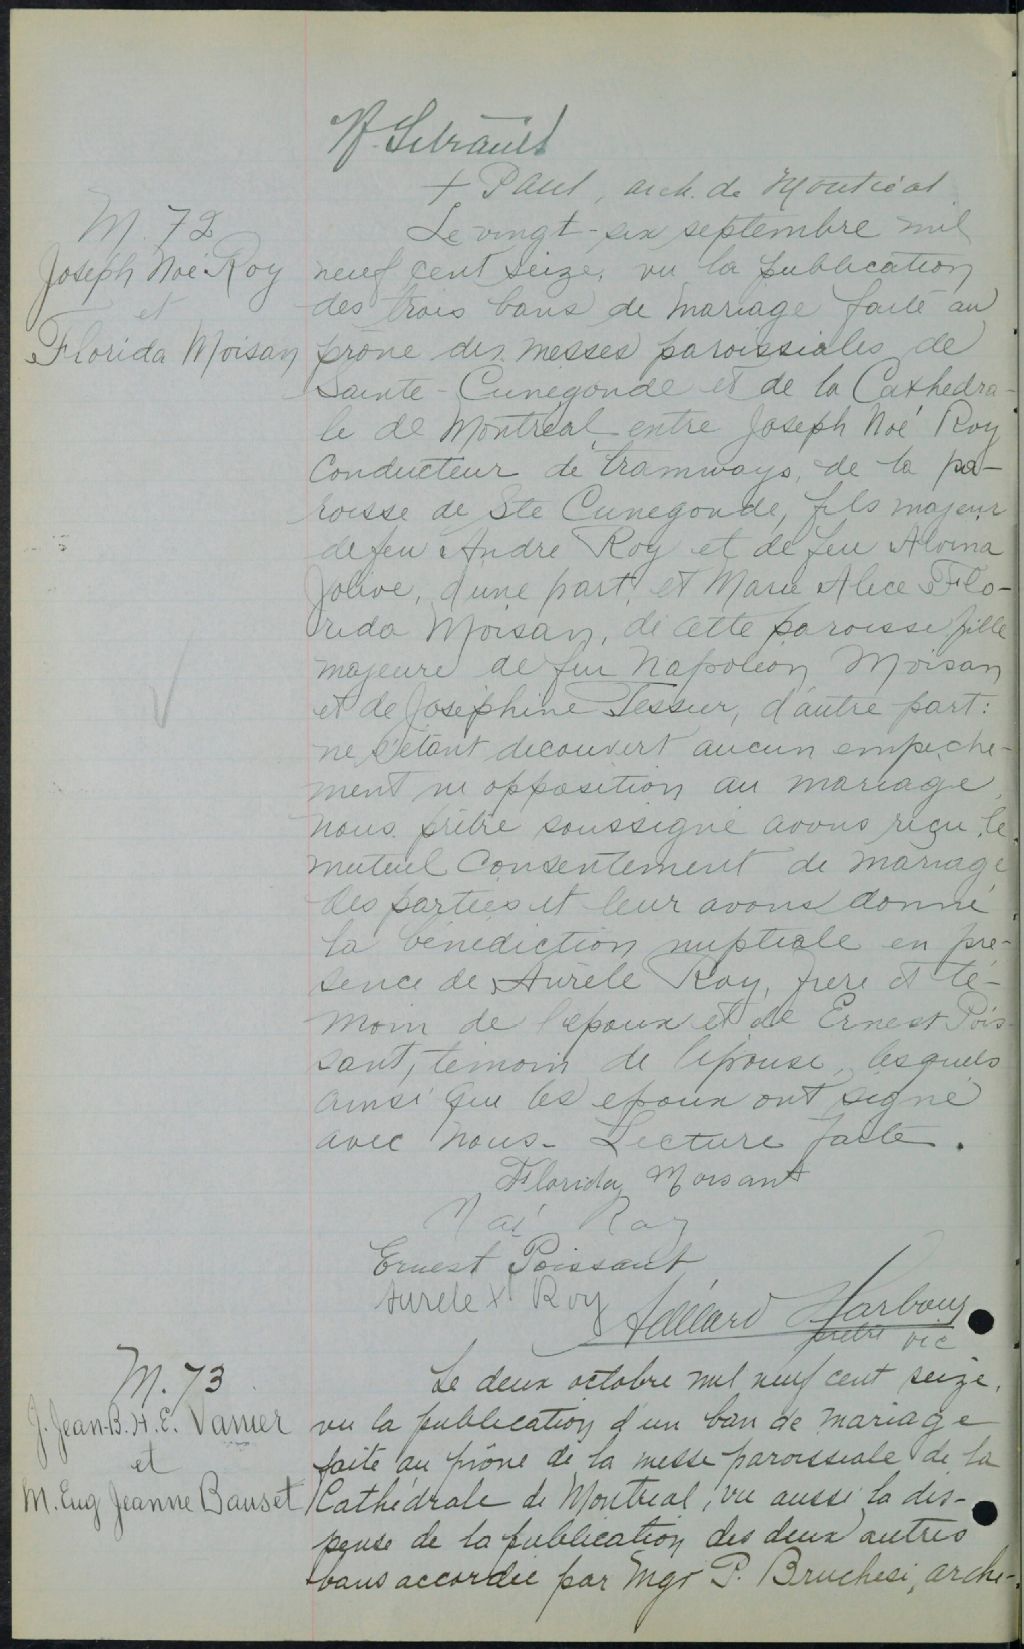 + Paul, arch. de Montréal
M. 72
Joseph Noé Roy
et
Florida Moisan
Le vingt-six septembre mil
neuf cent seize, vu la publication
des trois bans de mariage faite au
prône des messes paroissiales de
Sainte-Cunégonde et de la Cathédra-
le de Montréal entre Joseph Noé Roy
conducteur de tramways, de la pa-
roisse de Ste Cunegonde, fils majeur
de feu André Roy et de feu Alvina
Jolive, d'une part, et Marie Alice Flo-
rida Moisan, de cette paroisse fille
majeure de feu Napoléon Moisan
et de Joséphine Tessier, d'autre part:
ne s'étant découvert aucun empêche-
ment ni opposition au mariage,
nous prêtre soussigné avons reçu le
mutuel consentement de mariage
des parties et leur avons donné
la bénédiction nuptiale en pré-
sence de Aurèle Roy, frère et té-
moin de l'époux et de Ernest Pois-
sant, témoin de l'épouse, lesquels
ainsi que les époux ont signé
avec nous. Lecture faite.
Florida Moisant
Noé Roy
Ernest Poissant
Aurele X Roy
Adélard Harbour
prêtre vic
M. 73
J. Jean-B. H. E. Vanier
et
M. Eug Jeanne Bauset
Le deux octobre mil neuf cent seize,
vu la publication d'un ban de mariage
faite au prône de la messe paroissiale de la
Cathédrale de Montréal, vu aussi la dis-
pense de la publication des deux autres
bans accordée par Mgr P. Bruchesi, arche-